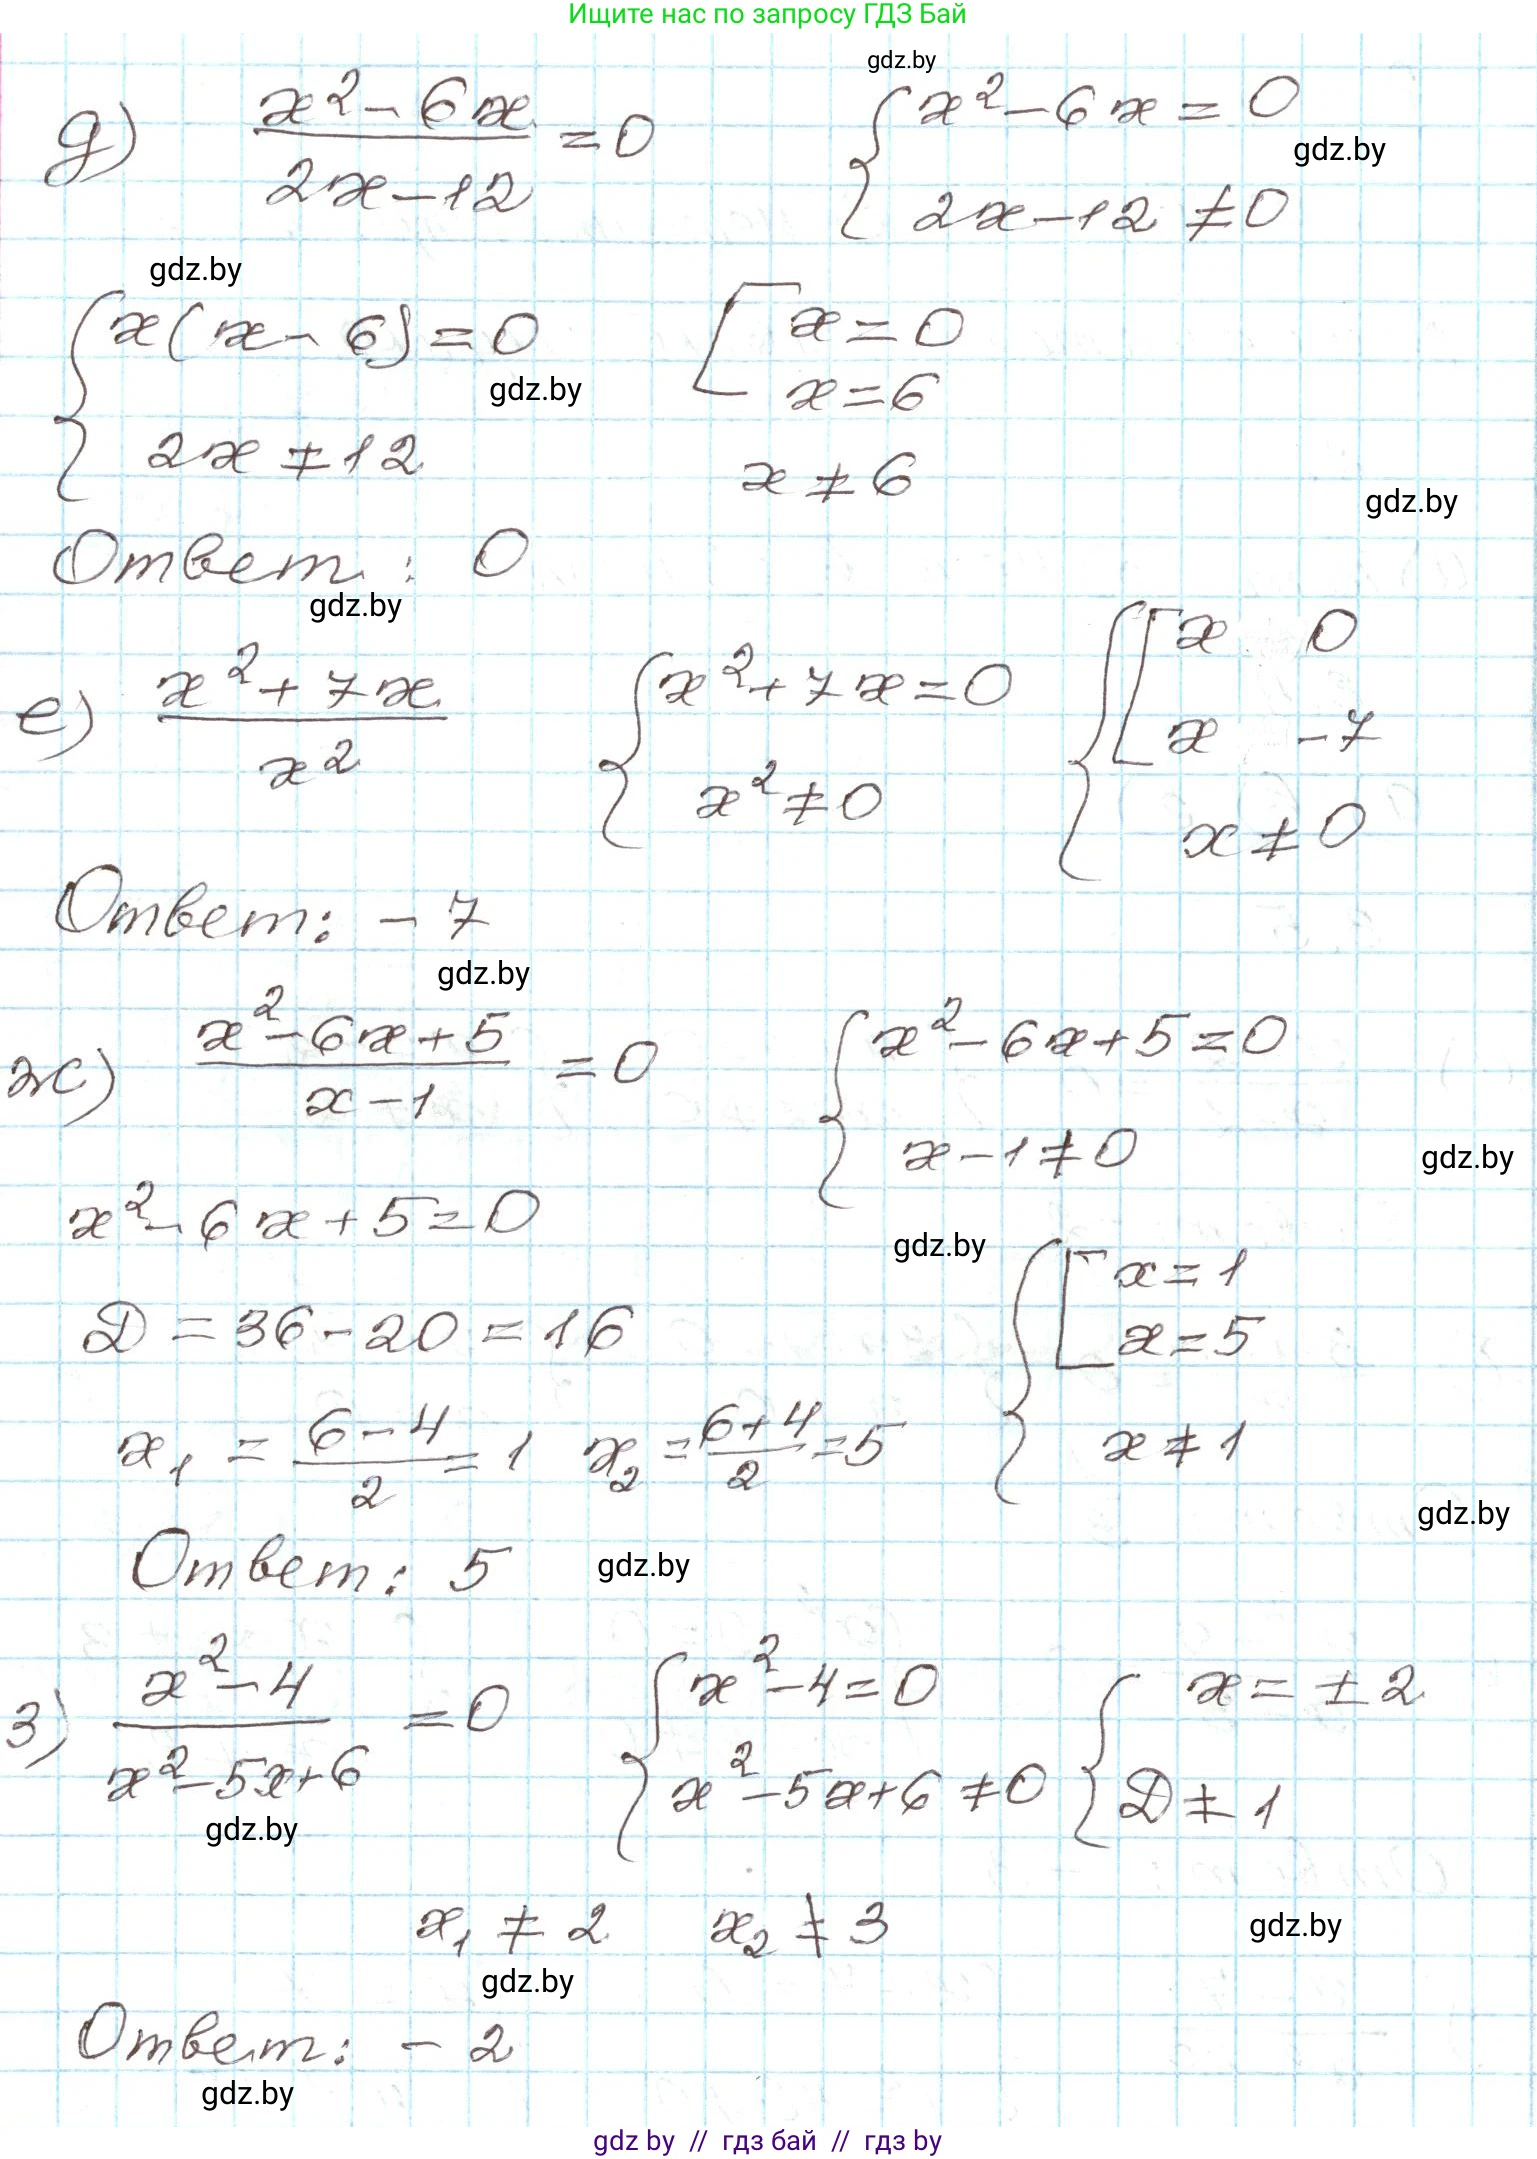 Ищите нас по запросу ГДЗ Бай
gdz.by
д) (x² - 6x)/(2x - 12) = 0   { x² - 6x = 0
2x - 12 ≠ 0
gdz.by
gdz.by
{ x(x - 6) = 0   [ x = 0
gdz.by
x = 6
2x ≠ 12   x ≠ 6
gdz.by
Ответ: 0
gdz.by
е) (x² + 7x)/x²   { x² + 7x = 0   { [ x 0
x² ≠ 0   x -7
x ≠ 0
Ответ: -7
gdz.by
ж) (x² - 6x + 5)/(x - 1) = 0   { x² - 6x + 5 = 0
x - 1 ≠ 0
gdz.by
x² - 6x + 5 = 0
gdz.by
{ [ x = 1
D = 36 - 20 = 16   x = 5
x₁ = (6 - 4)/2 = 1   x₂ = (6 + 4)/2 = 5   x ≠ 1
gdz.by
Ответ: 5
gdz.by
з) (x² - 4)/(x² - 5x + 6) = 0   { x² - 4 = 0   { x = ± 2
x² - 5x + 6 ≠ 0   D ≠ 1
gdz.by
x₁ ≠ 2   x₂ ≠ 3
gdz.by
gdz.by
Ответ: -2
gdz.by
gdz by // гдз бай // гдз by